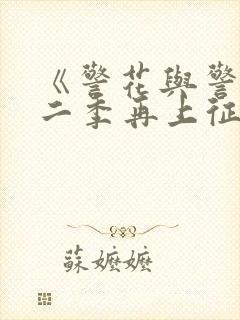 《警花與警
二季再上征
蘇嬤嬤